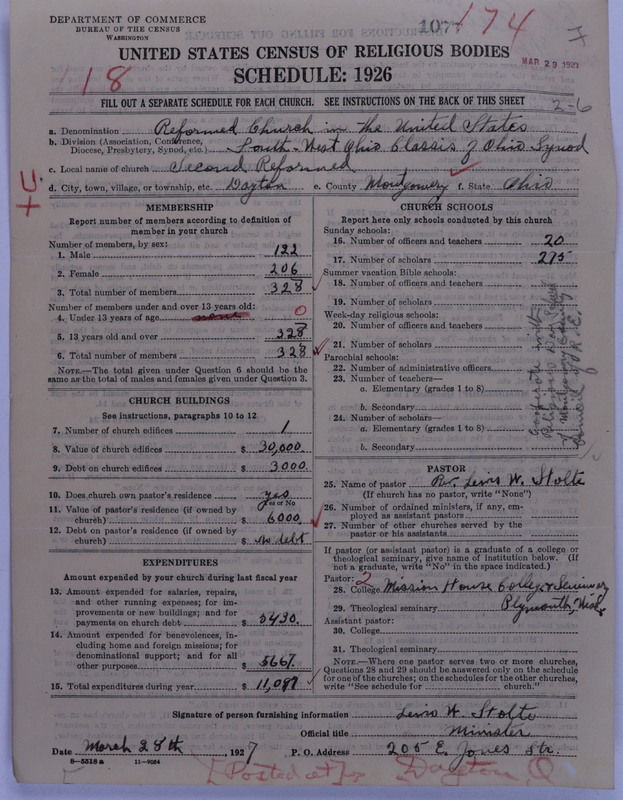 DEPARTMENT OF COMMERCE
BUREAU OF THE CENSUS
WASHINGTON
107
174
MAR 29 1927
UNITED STATES CENSUS OF RELIGIOUS BODIES
SCHEDULE: 1926
118
FILL OUT A SEPARATE SCHEDULE FOR EACH CHURCH. SEE INSTRUCTIONS ON THE BACK OF THIS SHEET
2-6
a. Denomination Reformed Church in the United States
b. Division (Association, Conference, Diocese, Presbytery, Synod, etc.) South-West Ohio Classis of Ohio Synod
c. Local name of church Second Reformed
d. City, town, village, or township, etc. Dayton e. County Montgomery f. State Ohio
MEMBERSHIP
Report number of members according to definition of
member in your church
Number of members, by sex:
1. Male 122
2. Female 206
3. Total number of members 328
Number of members under and over 13 years old:
4. Under 13 years of age none 0
5. 13 years old and over 328
6. Total number of members 328
NOTE.—The total given under Question 6 should be the
same as the total of males and females given under Question 3.
CHURCH BUILDINGS
See instructions, paragraphs 10 to 12
7. Number of church edifices 1
8. Value of church edifices $ 30,000.
9. Debt on church edifices $ 3000.
10. Does church own pastor's residence yes
Yes or No
11. Value of pastor's residence (if owned by
church) $ 6000.
12. Debt on pastor's residence (if owned by
church) $ no debt
EXPENDITURES
Amount expended by your church during last fiscal year
13. Amount expended for salaries, repairs,
and other running expenses; for im-
provements or new buildings; and for
payments on church debt $ 5430.
14. Amount expended for benevolences, in-
cluding home and foreign missions; for
denominational support; and for all
other purposes $ 5667.
15. Total expenditures during year $ 11,097
CHURCH SCHOOLS
Report here only schools conducted by this church
Sunday schools:
16. Number of officers and teachers 20
17. Number of scholars 275
Summer vacation Bible schools:
18. Number of officers and teachers
19. Number of scholars
Week-day religious schools:
20. Number of officers and teachers
21. Number of scholars
Parochial schools:
22. Number of administrative officers
23. Number of teachers—
a. Elementary (grades 1 to 8)
b. Secondary
24. Number of scholars—
a. Elementary (grades 1 to 8)
b. Secondary
Cooperate with
Religious Day School
of Montgomery County
Council of R.E.
PASTOR
25. Name of pastor Rev. Lewis W. Stolte
(If church has no pastor, write "None")
26. Number of ordained ministers, if any, em-
ployed as assistant pastors
27. Number of other churches served by the
pastor or his assistants
If pastor (or assistant pastor) is a graduate of a college or
theological seminary, give name of institution below. (If
not a graduate, write "No" in the space indicated.)
Pastor: 2
28. College Mission House College & Seminary
29. Theological seminary Plymouth, Wisc.
Assistant pastor:
30. College
31. Theological seminary
NOTE.—Where one pastor serves two or more churches,
Questions 28 and 29 should be answered only on the schedule
for one of the churches; on the schedules for the other churches,
write "See schedule for church."
Signature of person furnishing information Lewis W. Stolte
Official title Minister
Date March 28th 1927 P. O. Address 205 E. Jones Str.
8—5518 a 11—9024
[Posted at] Dayton, O